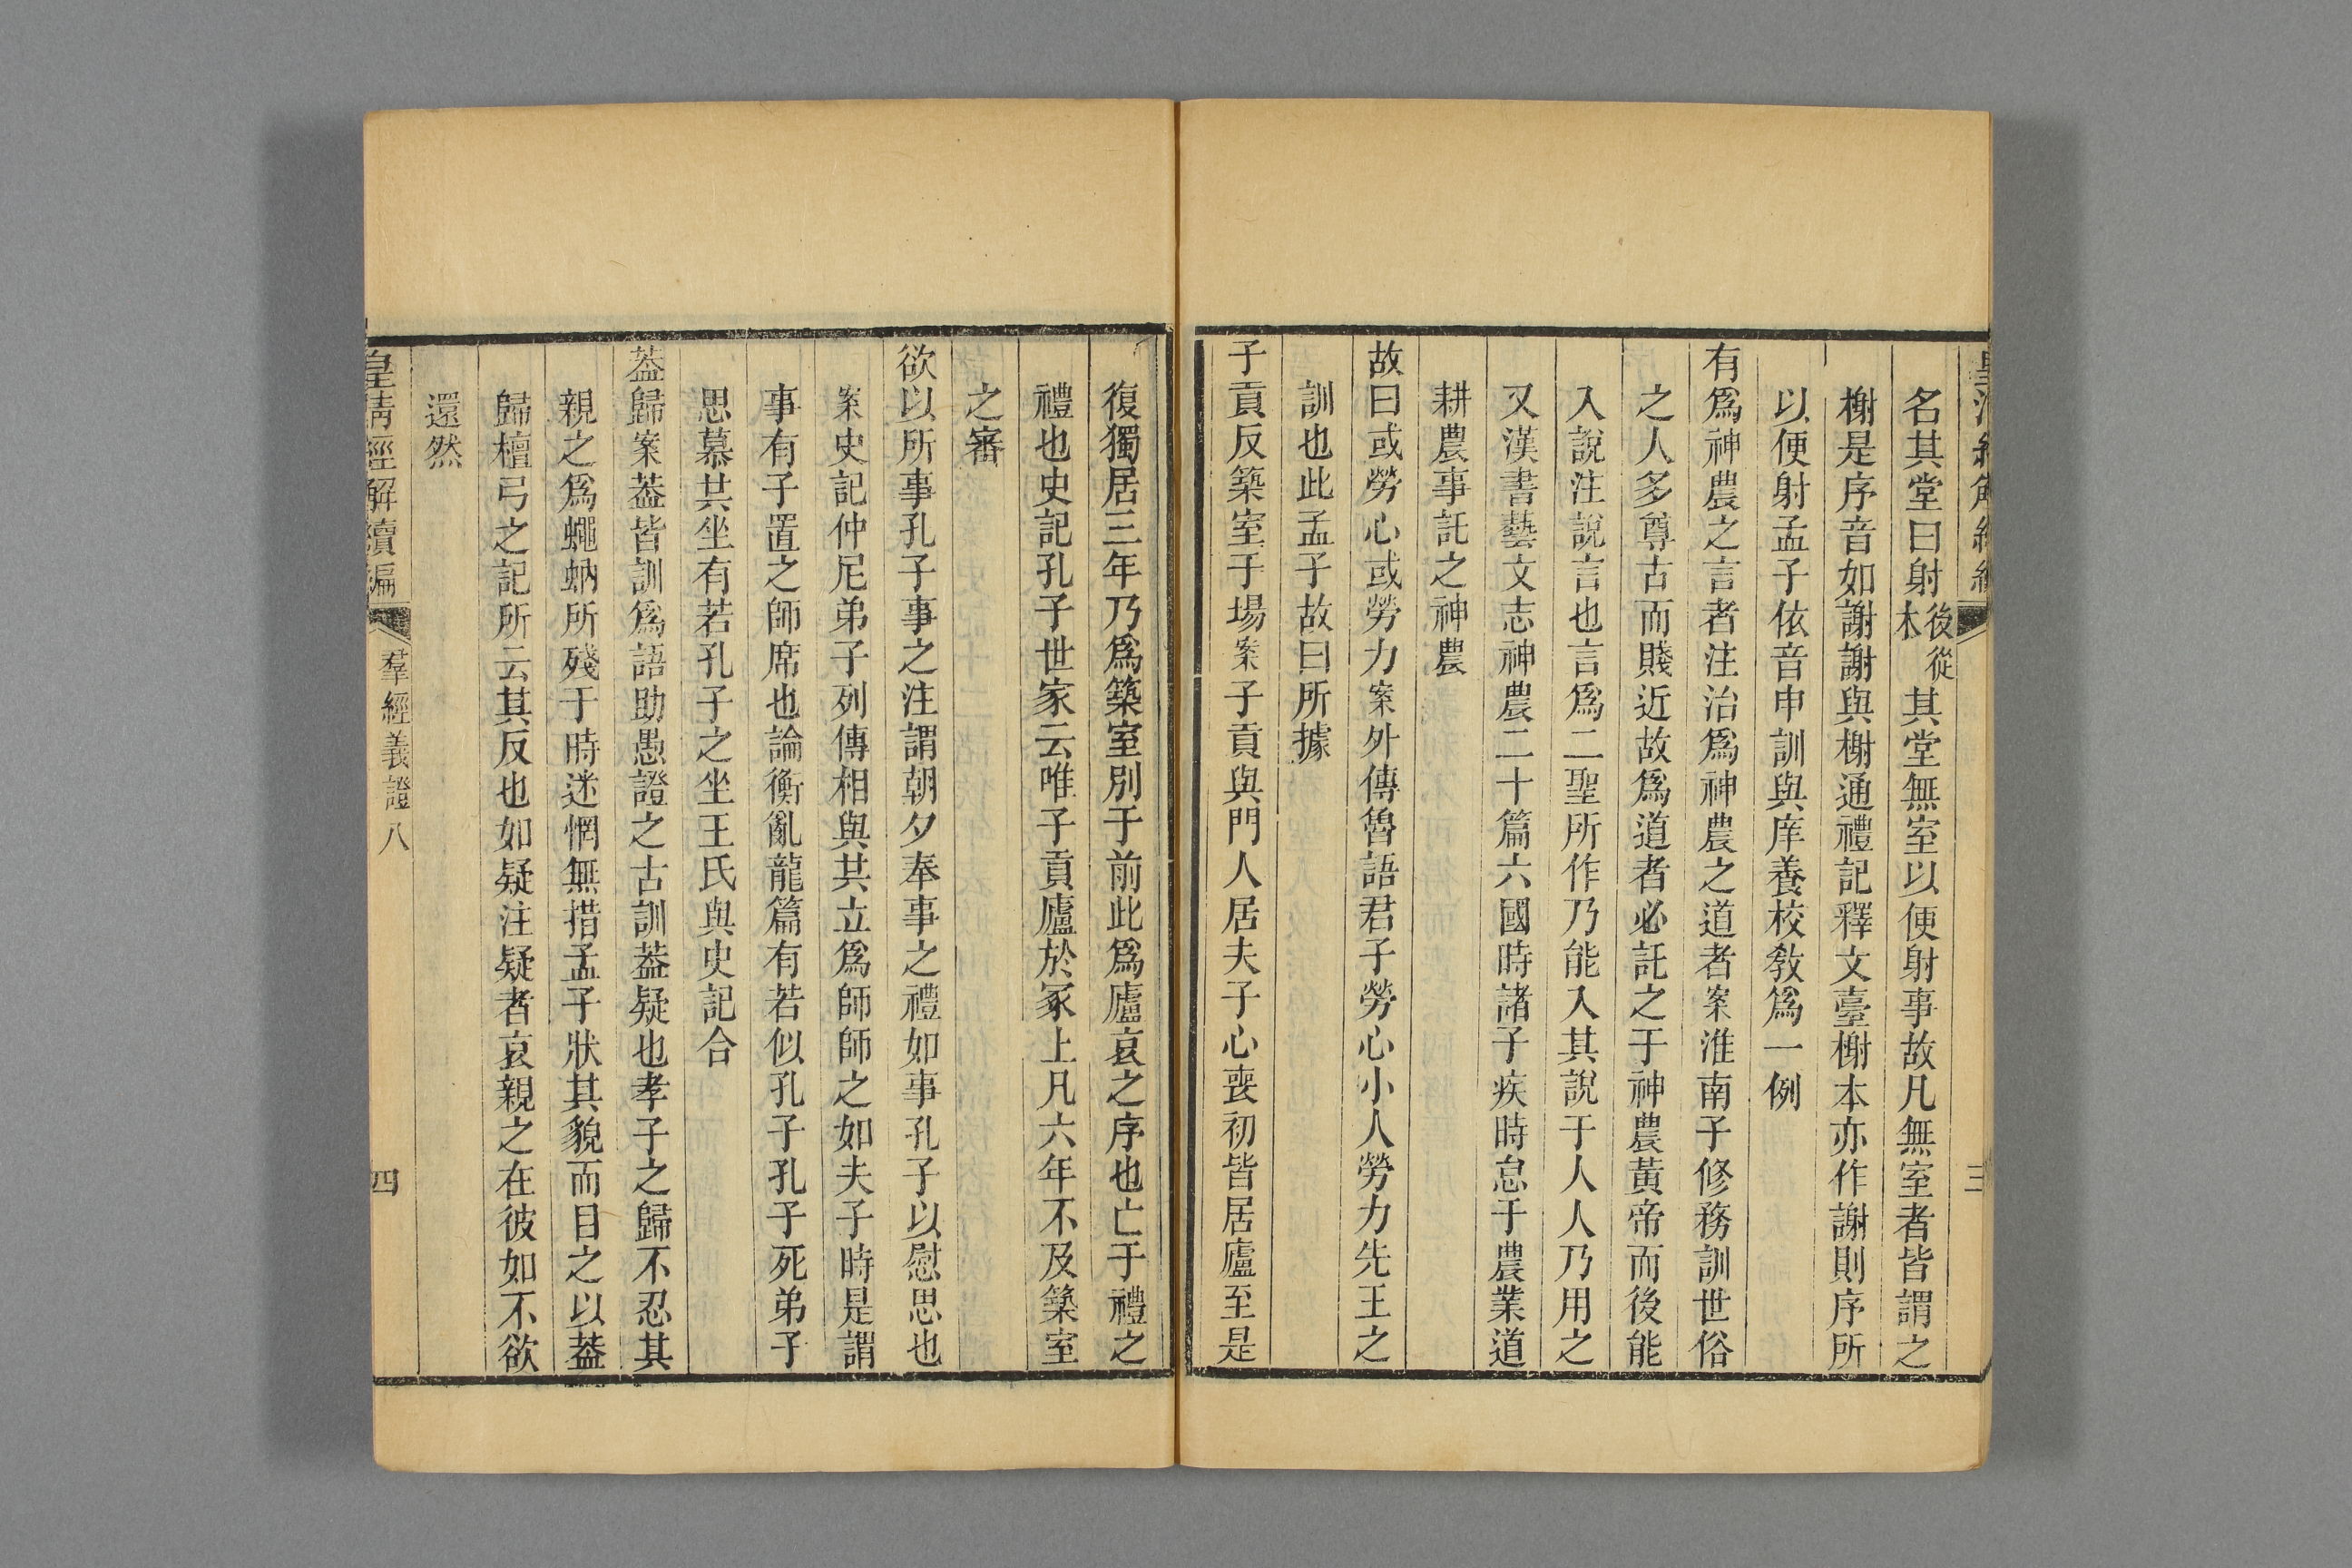 名其堂曰射後從木其堂無室以便射事故凡無室者皆謂之
榭是序音如謝謝與榭通禮記釋文臺榭本亦作謝則序所
以便射孟子依音申訓與庠養校教爲一例
有爲神農之言者注治爲神農之道者案淮南子修務訓世俗
之人多尊古而賤近故爲道者必託之于神農黃帝而後能
入說注說言也言爲二聖所作乃能入其說于人人乃用之
又漢書藝文志神農二十篇六國時諸子疾時怠于農業道
耕農事託之神農
故曰或勞心或勞力案外傳魯語君子勞心小人勞力先王之
訓也此孟子故曰所據
子貢反築室于場案子貢與門人居夫子心喪初皆居廬至是
復獨居三年乃爲築室別于前此爲廬哀之序也亡于禮之
禮也史記孔子世家云唯子貢廬於冢上凡六年不及築室
之審
欲以所事孔子事之注謂朝夕奉事之禮如事孔子以慰思也
案史記仲尼弟子列傳相與其立爲師師之如夫子時是謂
事有子置之師席也論衡亂龍篇有若似孔子孔子死弟子
思慕共坐有若孔子之坐王氏與史記合
葢歸案葢皆訓爲語助愚證之古訓葢疑也孝子之歸不忍其
親之爲蠅蚋所殘于時迷惘無措孟子狀其貌而目之以葢
歸檀弓之記所云其反也如疑注疑者哀親之在彼如不欲
還然
皇清經解續編
羣經義證八
四